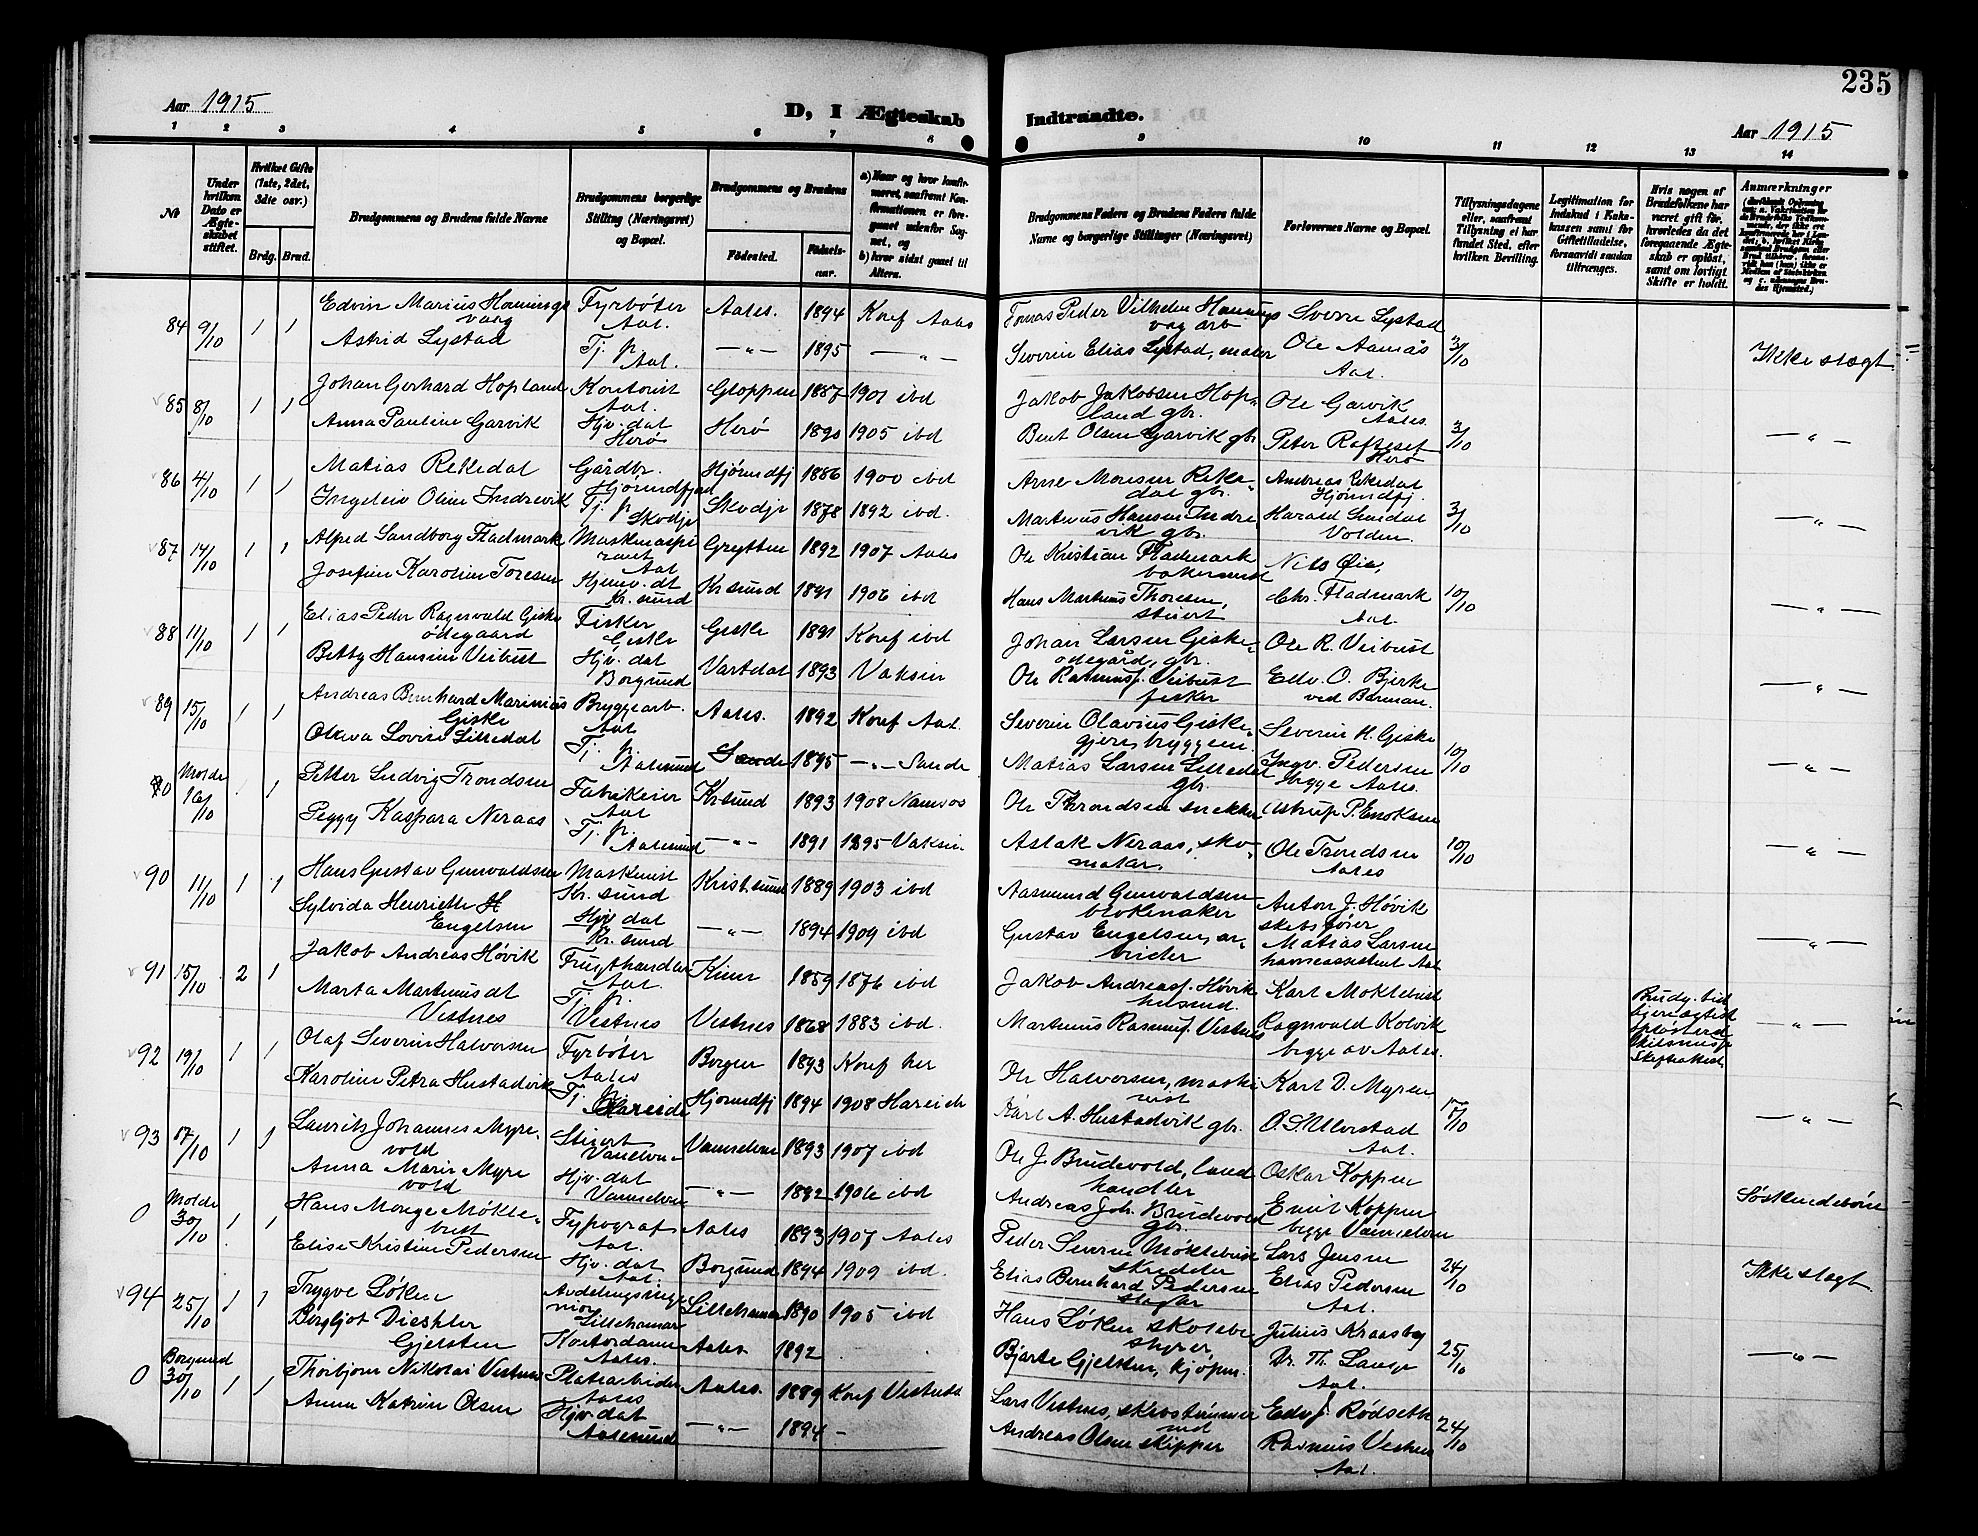 235
Aar 1915
D, I Ægteskab
Indtraadte.
Aar 1915
1 2 3 4 5 6 7 8 9 10 11 12 13 14
№
Under hvilken Dato er Ægteskabet stiftet.
Hvilket Gifte (1ste, 2det, 3die osv.)
Brdg. Brud.
Brudgommens og Brudens fulde Navne
Brudgommens borgerlige Stilling (Næringsvei) og Bopæl.
Brudgommens og Brudens
Fødested.
Fødselsaar.
a) Naar og hvor konfirmeret, saafremt Konfirmationen er foregaaet udenfor Sognet, og
b) hvor sidst gaaet til Alters.
Brudgommens Faders og Brudens Faders fulde Navne og borgerlige Stillinger (Næringsvei)
Forlovernes Navne og Bopæl.
Tillysningsdagene eller, saafremt Tillysning ei har fundet Sted, efter hvilken Bevilling.
Legitimation for Indskud i Enkekassen samt for Giftetilladelse, forsaavidt saadan tiltrænges.
Hvis nogen af Brudefolkene har været gift før, hvorledes da det foregaaende Ægteskab er opløst, samt om lovligt Skifte er holdt.
Anmærkninger
84 9/10 1 1 Edvin Marius Hamnings Fyrbøter Aales. 1894 Konf Aales Tomas Peder Vilhelm Hamnings Sverre Lystad
vaag Aal. vag arb
Astrid Lystad Tj. p. —„— 1895 —„— Severin Elias Lystad, maler Ole Aamås 3/10 Ikke slægt
Aal. Aal.
85 8/10 1 1 Johan Gerhard Hopland Kontorist Gloppen 1887 1901 ibd Jakob Jakobsen Hop- Ole Garvik
Aal. land gbr. Aales.
Anna Pauline Garvik Hjv. dat Herø 1890 1905 ibd Bent Olsen Garvik gbr Peter Rafteset 3/10 —„—
Herø Herø
86 4/10 1 1 Matias Rekkedal Gårdbr. Hjørundfj 1886 1900 ibd Arne Monsen Rekke- Andreas Rekedal
Hjørundfjord dal gbr. Hjørundfj.
Ingeleiv Oline Indrevik Tj. p. Skodje 1878 1892 ibd. Martinus Hansen Indre Harald Sundal 3/10 —„—
Skodje vik gbr. Volden.
87 14/10 1 1 Alfred Sandborg Fladmark Maskinaspi Grytten 1892 1907 Aales Ole Kristian Fladmark Nils Øie,
rant Aal bakermest
Josefine Karoline Toresen Hjemv. dt Kr.sund 1891 1906 ibd Hans Martinus Thoresen, Chr. Fladmark 10/10 —„—
Kr. sund stuert Aal.
88 11/10 1 1 Elias Peder Ragnvald Giske Fisker Giske 1891 Konf ibd Johan Larsen Giske- Ole R. Veibust
ødegaard Giske ødegård, gbr.
Betty Hansine Veibust Hjv. dat Vartdal 1893 Vaksin Ole Rasmusf. Veibust Edv. O. Bjerke —„—
Borgund fisker ved Barman.
89 15/10 1 1 Andreas Bernhard Marinius Bryggearb. Aales. 1892 Konf Aal. Severin Olavius Giske- Severin H. Giske
Giske Aal
Oluva Lovise Lilledal Tj. p. Sande 1895 —„— Sande Matias Larsen Lilledal Ingv. Pedersen 10/10 —„—
Aalesund gbr. begge Aales.
0 Molde 16/10 1 1 Petter Ludvig Trondsen Fabrikeier Kr.sund 1893 1908 Namsos Ole Throndsen snekker Astrup P. Enoksen
Aal
Peggy Kaspara Neraas Tj. p. —„— 1891 1895 Vaksin Aslak Neraas, sko- Ole Trondsen 10/10 —„—
Aalesund maker. Aales
90 11/10 1 1 Hans Gustav Gunvaldsen Maskinist Krist.sund 1889 1903 ibd Aasmund Gunvaldsen Anton J. Høvik
Kr. sund blokmaker skibsfører
Sylvida Henriette H Hjv. dat —„— 1894 1909 ibd Gustav Engelsen, ar- Matias Larsen —„—
Engelsen Kr. sund beider havneassistent Aal
91 15/10 2 1 Jakob Andreas Høvik Frugthandler Kinn 1859 1876 ibd Jakob Andreasf. Høvik Karl Moktebust
Aal. husmd.
Marta Martinusdt Tj. p. Vestnes 1868 1883 ibd. Martinus Rasmusf. Vestnes Ragnvald Kolvik —„—
Vestnes Vestnes begge av Aales.
92 19/10 1 1 Olaf Severin Halvorsen Fyrbøter Bergen 1893 Konf her Ole Halvorsen, maski Karl D. Myren
Aales nist
Karoline Petra Hustadvik Tj. p. Hjørundfj 1894 1908 Hareide Karl A. Hustadvik gbr. O. S. Ulvestad 17/10 —„—
Hareide Aal.
93 17/10 1 1 Lauritz Johannes Myre- Stuert Vannelven 1893 1907 ibd Ole J. Brudevold, land Oskar Koppen
vold Vanelven handler
Anna Marie Myre Hjv. dat —„— 1892 1906 ibd Andreas Joh. Brudevold Emil Koppen Søskendebørn
vold Vannelven gbr. begge Vannelven
0 Molde 30/10 1 1 Hans Monge Møkle- Typograf Aales 1893 1907 Aales Peder Severin Møklebust Lars Jensen
bust Aal. skredder
Elise Kristine Pedersen Hjv. dat Borgund 1894 1909 ibd. Elias Bernhard Pedersen Elias Pedersen 24/10 Ikke slægt
Aal. slagter Aal.
94 25/10 1 1 Trygve Løken Avdelingsinge Lillehamer 1890 1905 ibd Hans Løken skolebe Julius Kraasby
niør Lillehamar styrer
Bergljot Dieshler Kontordame Aales 1892 Bjarte Gjelsten, kjøpm. Dr. Th. Lange 25/10 —„—
Gjelsten Aales. Aal.
0 Borgund 30/10 1 1 Thorbjørn Nikolai Vestnes Pladsarbeider Aales. 1889 Konf Vestnes Lars Vestnes, skibstømmer Edv J. Rødsette
Aales md
Anna Katrine Olsen Hjv. dat —„— 1894 — Andreas Olsen skipper Rasmus Vestnes 24/10
Aalesund Aal.